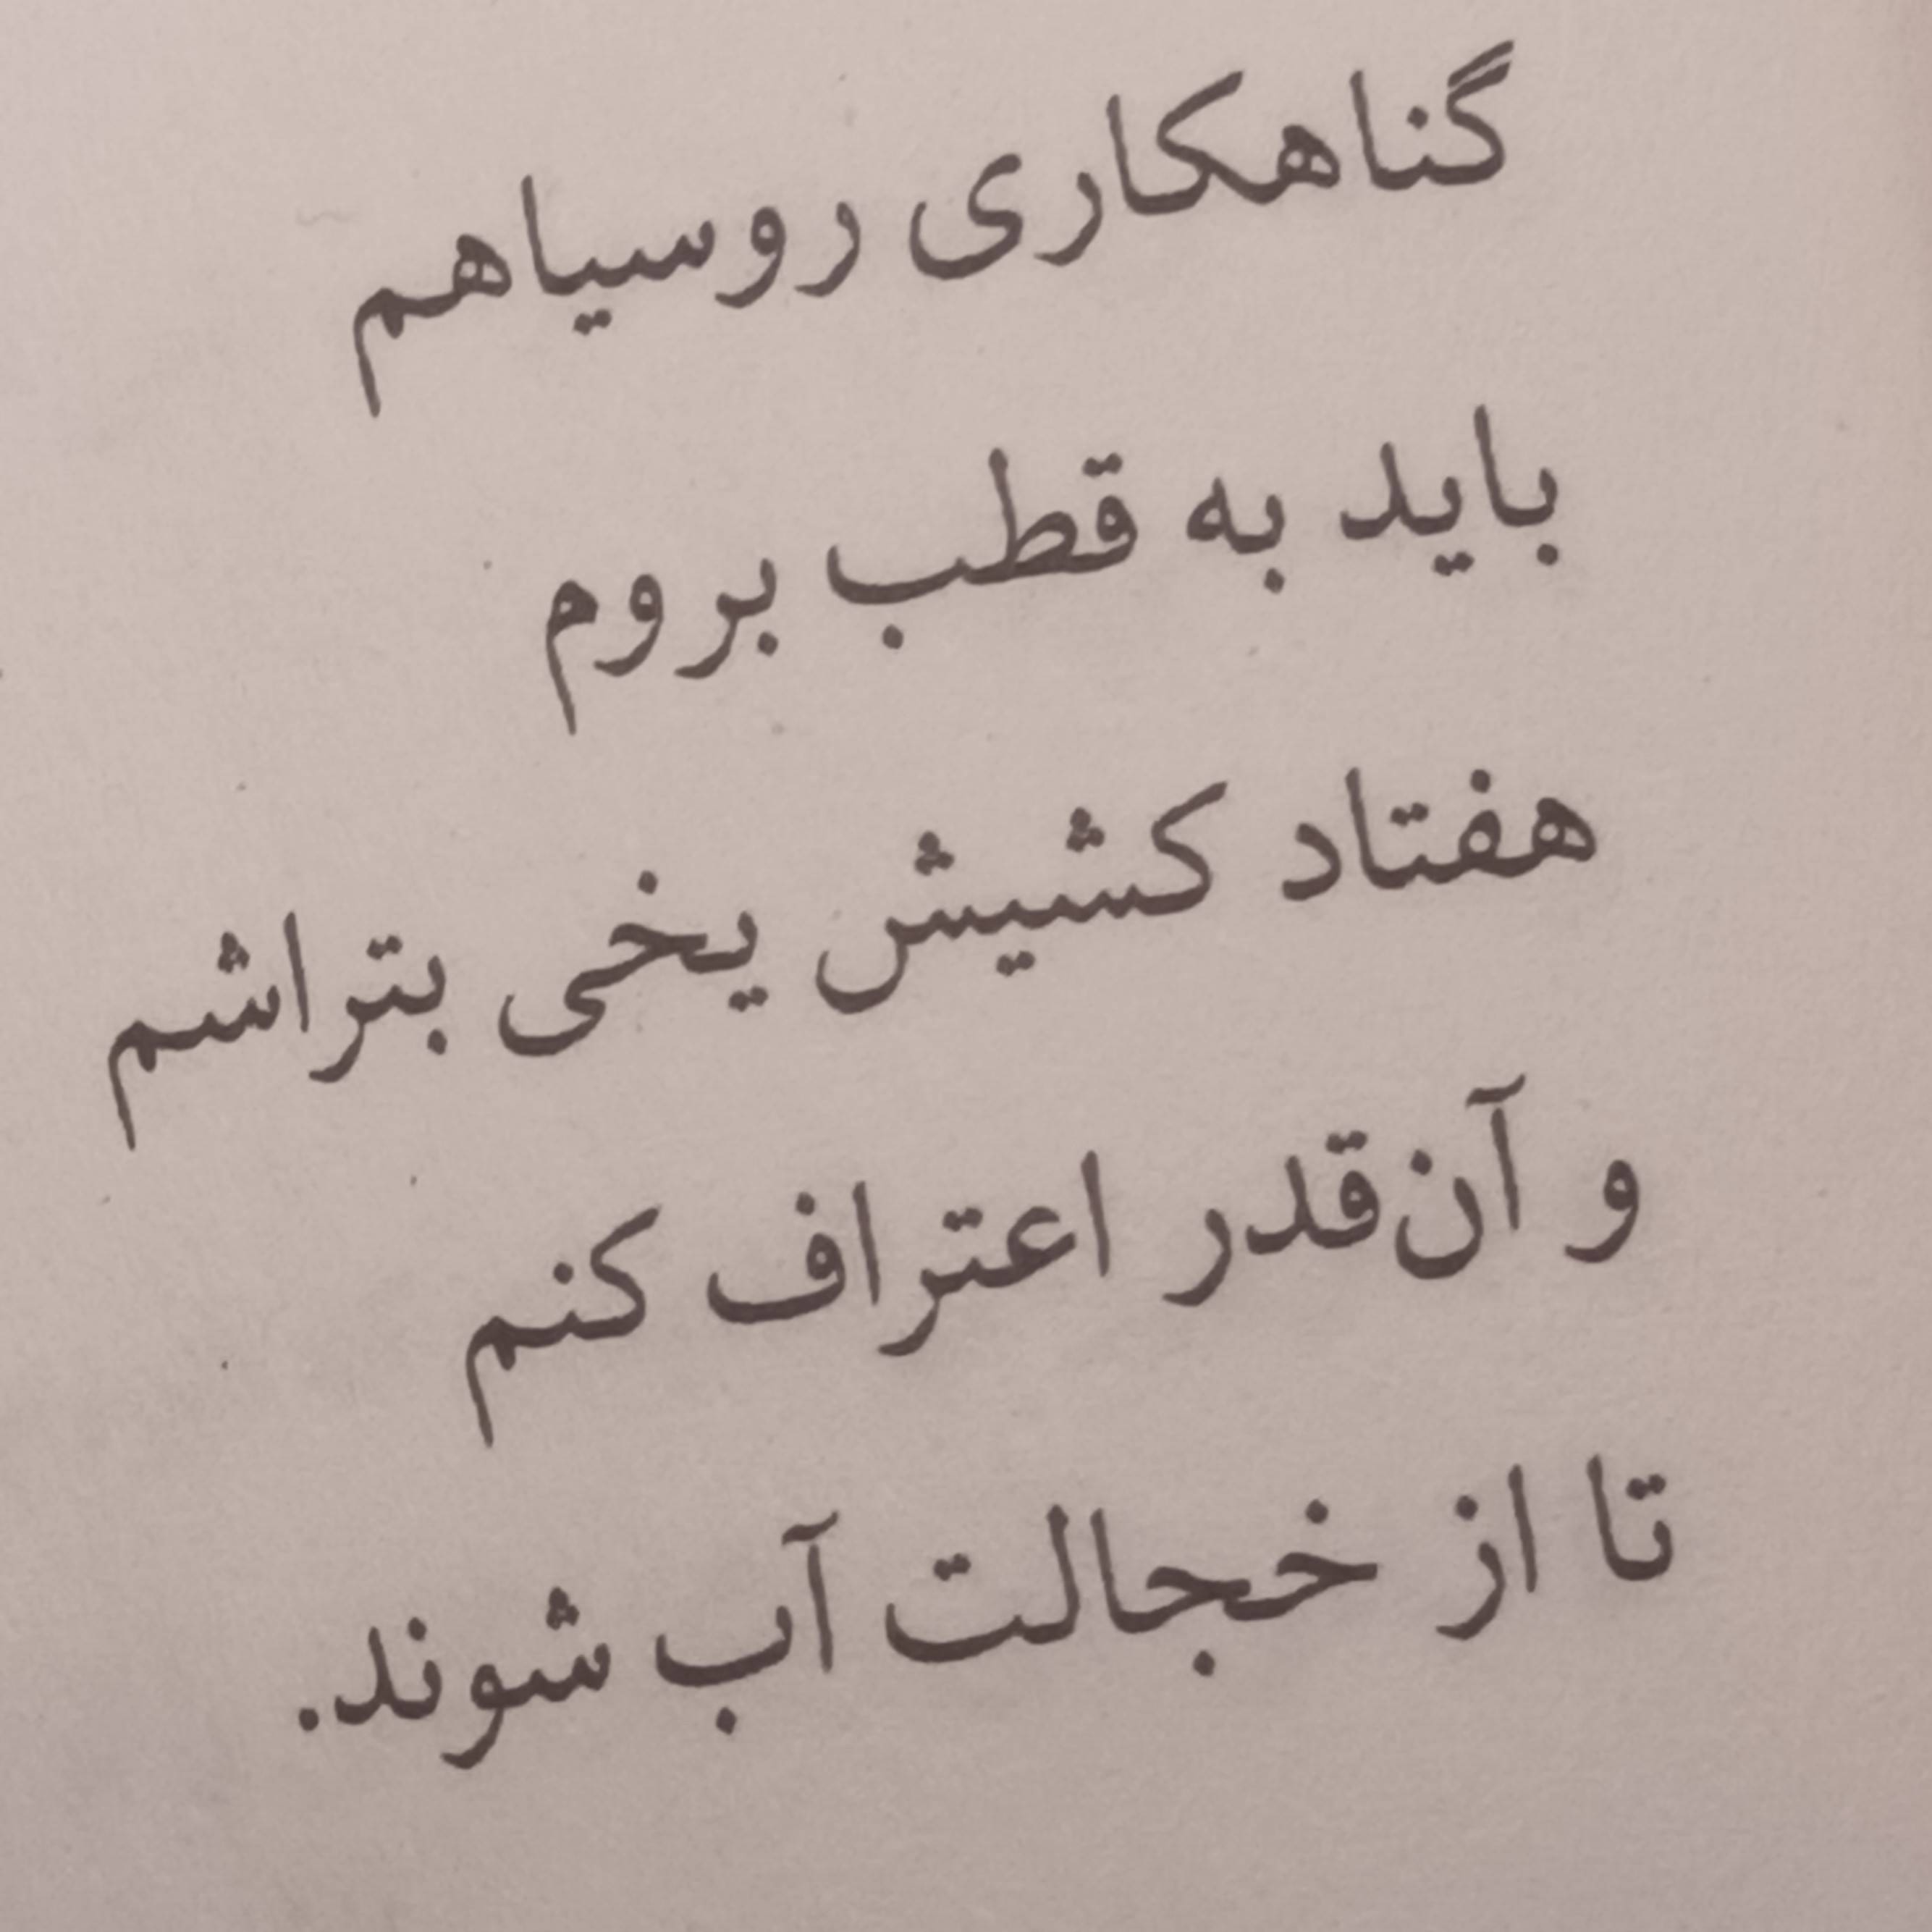 گناهکاری روسیاهم
باید به قطب بروم
هفتاد کشیش یخی بتراشم
و آن‌قدر اعتراف کنم
تا از خجالت آب شوند.